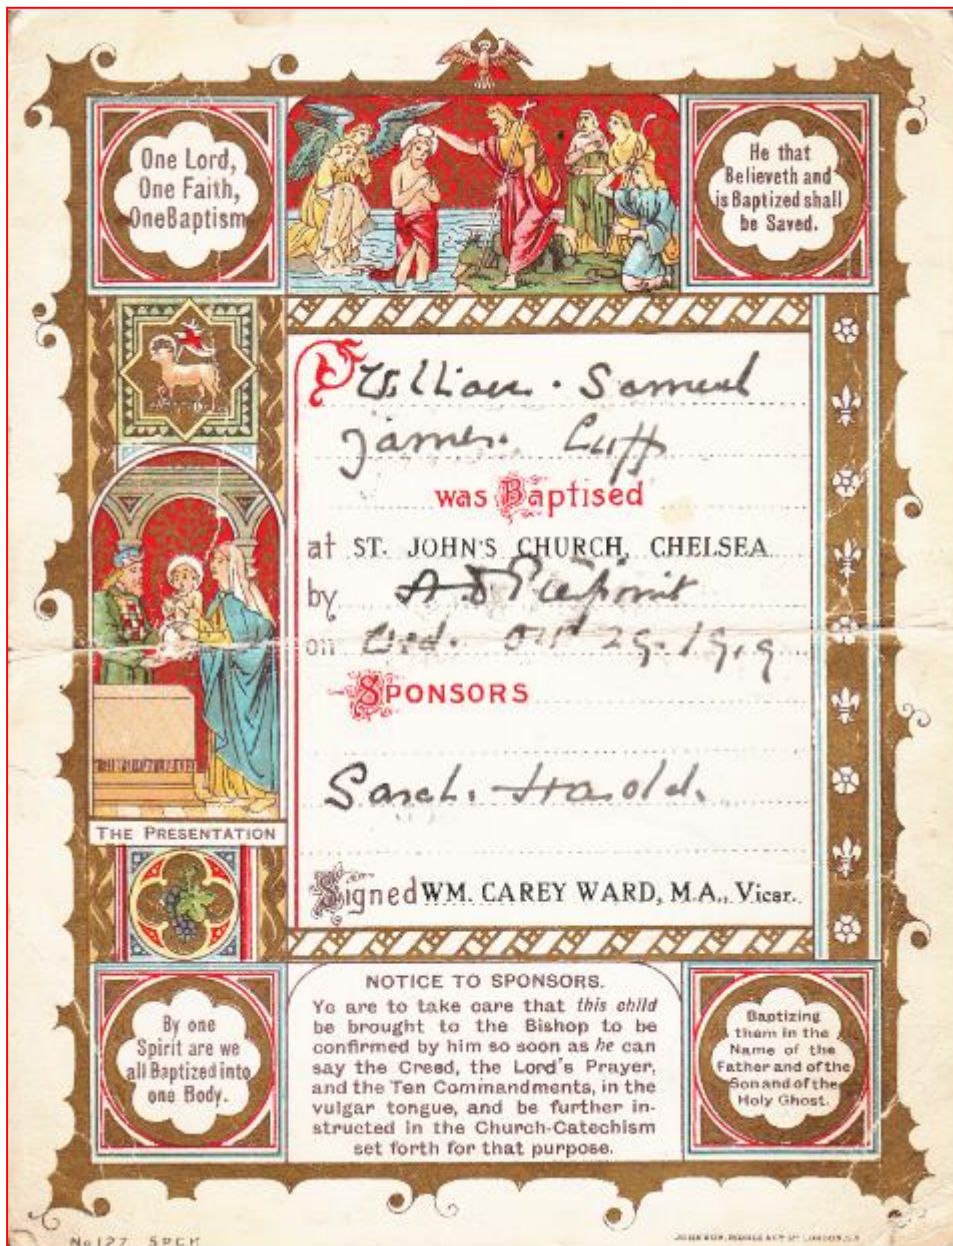 One Lord,
One Faith,
One Baptism
He that
Believeth and
is Baptized shall
be Saved.
William. Samuel
James. Cuff
was Baptised
at ST. JOHN'S CHURCH, CHELSEA
by A D Pierpoint
on Wed. Oct 29. 1919
SPONSORS
Sarah. Harold.
THE PRESENTATION
Signed WM. CAREY WARD, M.A., Vicar.
By one
Spirit are we
all Baptized into
one Body.
NOTICE TO SPONSORS.
Ye are to take care that this child
be brought to the Bishop to be
confirmed by him so soon as he can
say the Creed, the Lord's Prayer,
and the Ten Commandments, in the
vulgar tongue, and be further in-
structed in the Church-Catechism
set forth for that purpose.
Baptizing
them in the
Name of the
Father and of the
Son and of the
Holy Ghost.
No 127 SPCK